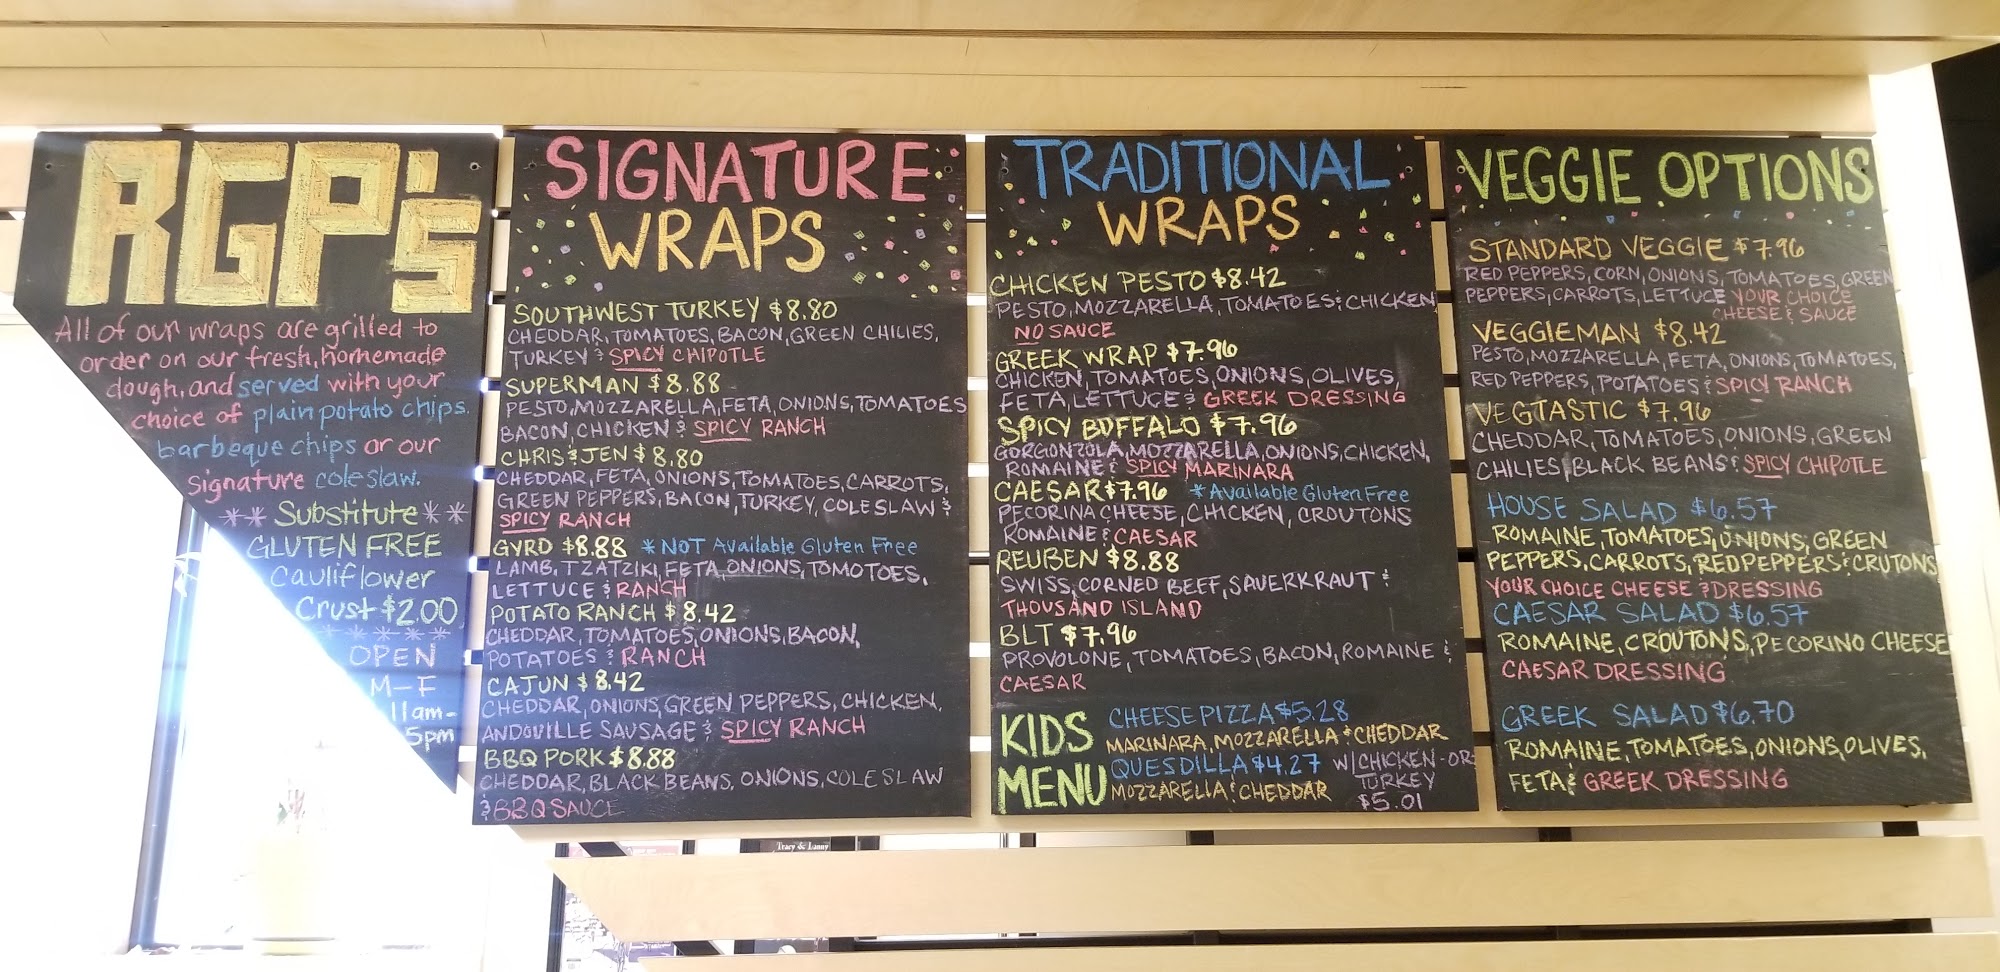 RGP's
All of our wraps are grilled to
order on our fresh, homemade
dough, and served with your
choice of plain potato chips.
barbeque chips or our
signature coleslaw.
** Substitute **
GLUTEN FREE
Cauliflower
Crust $2.00
******
OPEN
M-F
11am-
5pm
SIGNATURE
WRAPS
SOUTHWEST TURKEY $8.80
CHEDDAR, TOMATOES, BACON, GREEN CHILIES,
TURKEY & SPICY CHIPOTLE
SUPERMAN $8.88
PESTO, MOZZARELLA, FETA, ONIONS, TOMATOES
BACON, CHICKEN & SPICY RANCH
CHRIS & JEN $8.80
CHEDDAR, FETA, ONIONS, TOMATOES, CARROTS,
GREEN PEPPERS, BACON, TURKEY, COLESLAW &
SPICY RANCH
GYRO $8.88 *NOT Available Gluten Free
LAMB, TZATZIKI, FETA, ONIONS, TOMOTOES,
LETTUCE & RANCH
POTATO RANCH $8.42
CHEDDAR, TOMATOES, ONIONS, BACON,
POTATOES & RANCH
CAJUN $8.42
CHEDDAR, ONIONS, GREEN PEPPERS, CHICKEN,
ANDOVILLE SAUSAGE & SPICY RANCH
BBQ PORK $8.88
CHEDDAR, BLACK BEANS, ONIONS, COLESLAW
& BBQ SAUCE
TRADITIONAL
WRAPS
CHICKEN PESTO $8.42
PESTO, MOZZARELLA, TOMATOES & CHICKEN
NO SAUCE
GREEK WRAP $7.96
CHICKEN, TOMATOES, ONIONS, OLIVES,
FETA, LETTUCE & GREEK DRESSING
SPICY BUFFALO $7.96
GORGONZOLA, MOZZARELLA, ONIONS, CHICKEN,
ROMAINE & SPICY MARINARA
CAESAR $7.96 *Available Gluten Free
PECORINA CHEESE, CHICKEN, CROUTONS
ROMAINE & CAESAR
REUBEN $8.88
SWISS, CORNED BEEF, SAUERKRAUT &
THOUSAND ISLAND
BLT $7.96
PROVOLONE, TOMATOES, BACON, ROMAINE &
CAESAR
KIDS
MENU
CHEESE PIZZA $5.28
MARINARA, MOZZARELLA & CHEDDAR
QUESDILLA $4.27 W/CHICKEN-OR
TURKEY
MOZZARELLA & CHEDDAR
$5.01
VEGGIE OPTIONS
STANDARD VEGGIE $7.96
RED PEPPERS, CORN, ONIONS, TOMATOES, GREEN
PEPPERS, CARROTS, LETTUCE YOUR CHOICE
CHEESE & SAUCE
VEGGIEMAN $8.42
PESTO, MOZZARELLA, FETA, ONIONS, TOMATOES,
RED PEPPERS, POTATOES & SPICY RANCH
VEGTASTIC $7.96
CHEDDAR, TOMATOES, ONIONS, GREEN
CHILIES, BLACK BEANS & SPICY CHIPOTLE
HOUSE SALAD $6.57
ROMAINE, TOMATOES, ONIONS, GREEN
PEPPERS, CARROTS, RED PEPPERS & CRUTONS
YOUR CHOICE CHEESE & DRESSING
CAESAR SALAD $6.57
ROMAINE, CROUTONS, PECORINO CHEESE
CAESAR DRESSING
GREEK SALAD $6.70
ROMAINE, TOMATOES, ONIONS, OLIVES,
FETA & GREEK DRESSING
Tracy & Lanny